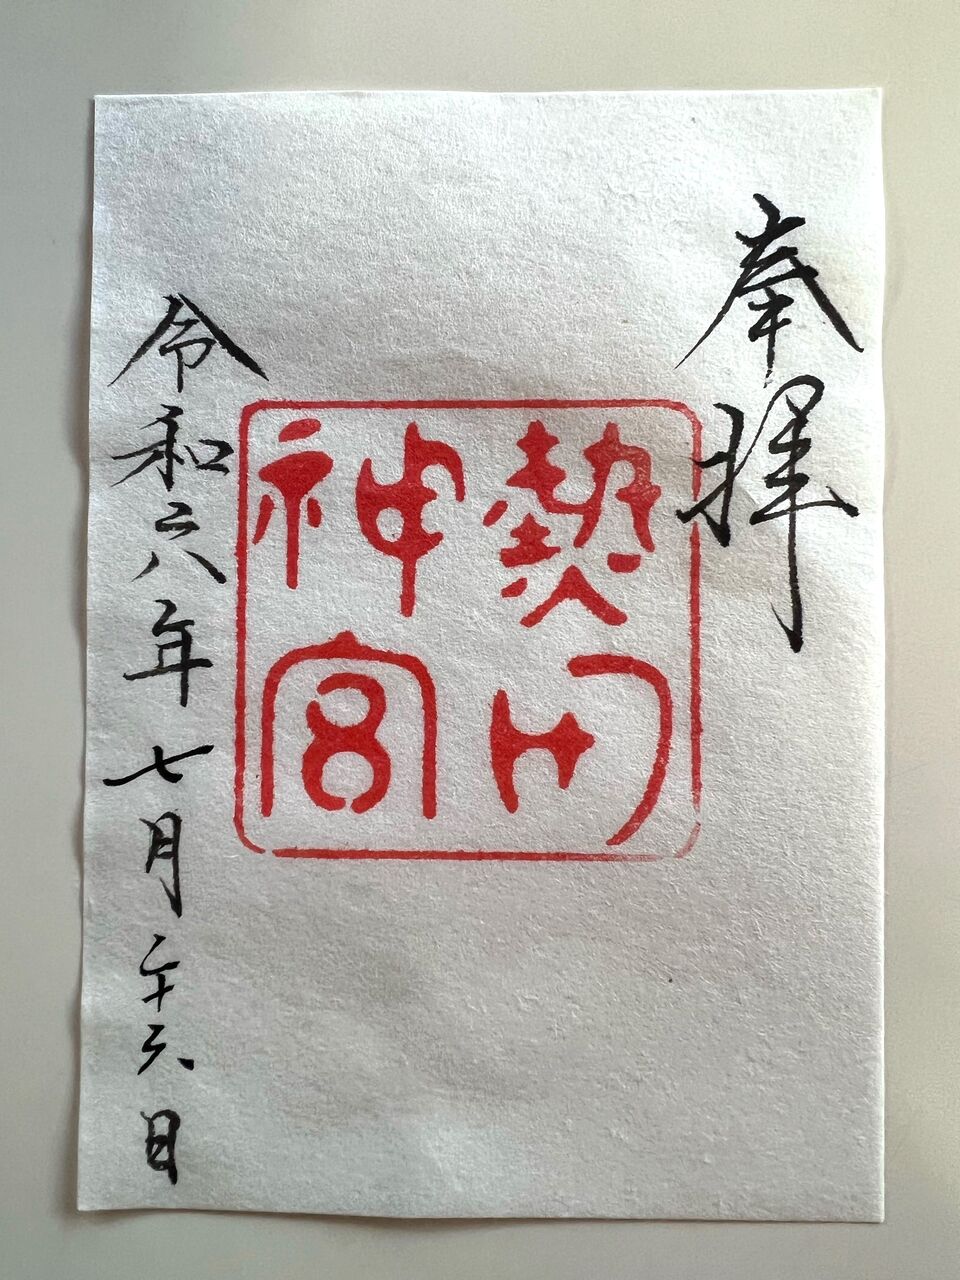 奉拝
熱田
神宮
令和六年七月二十六日